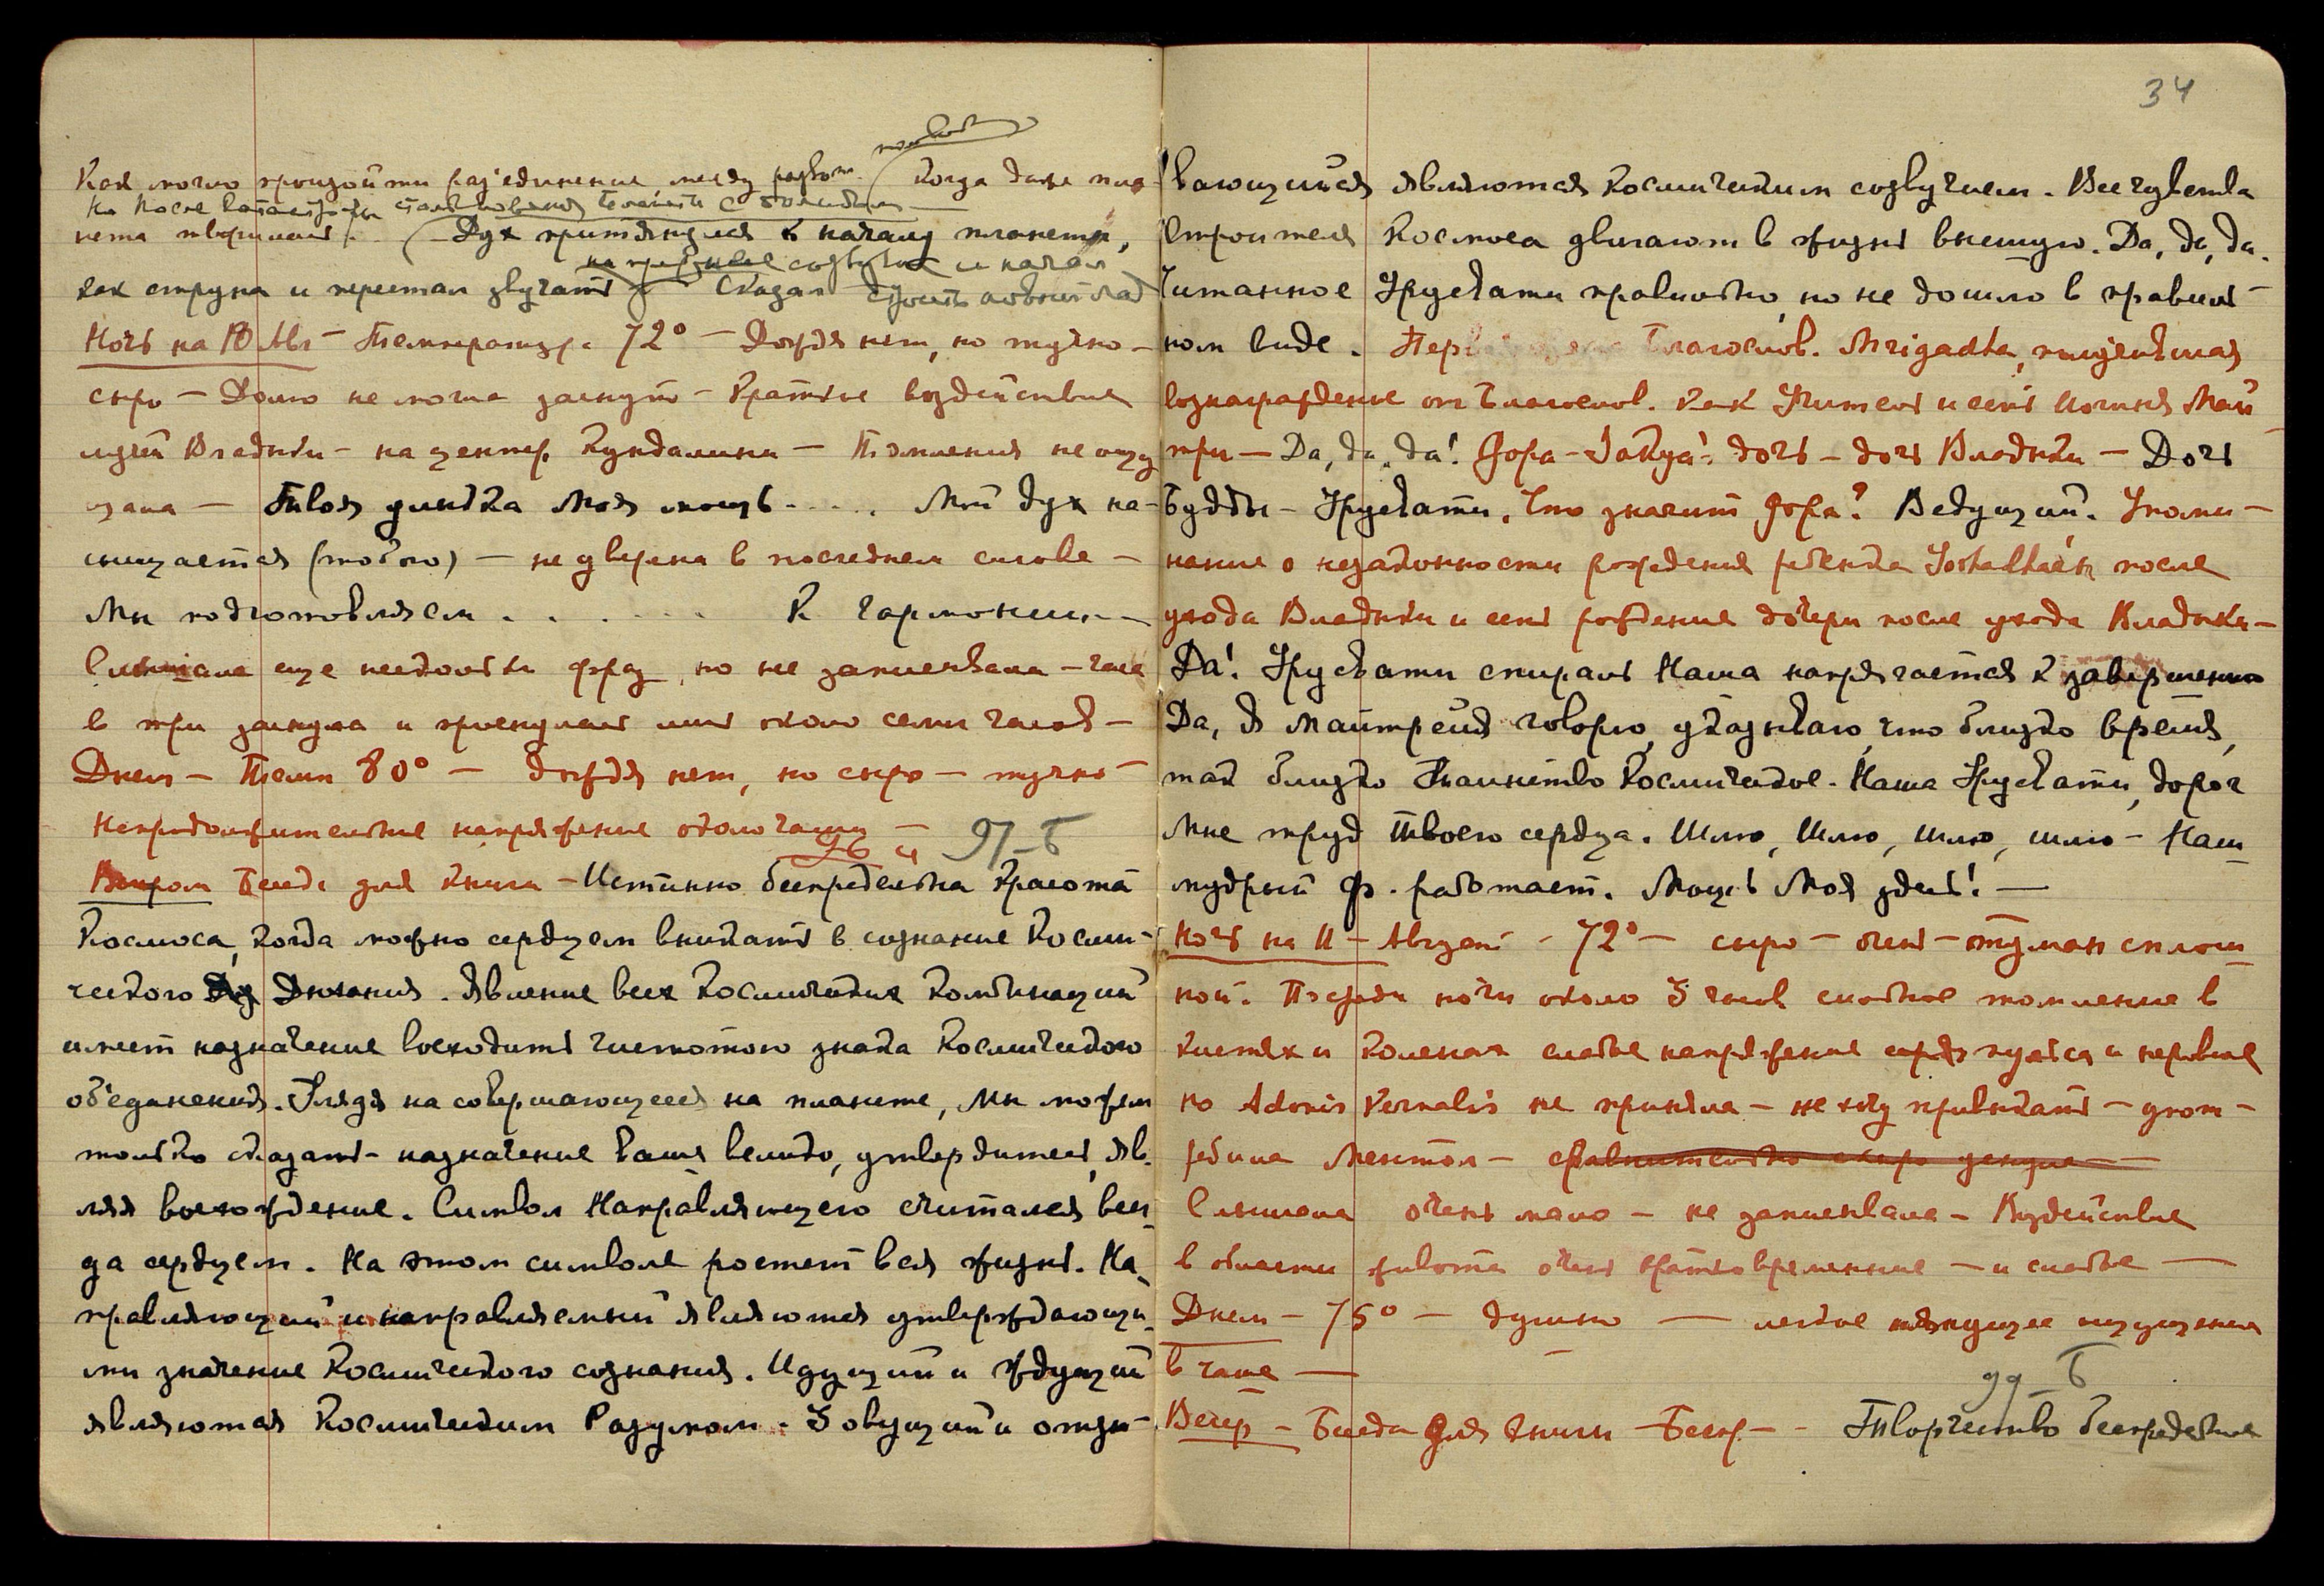 34
Как могло произойти раз'единение между 
Когда даже пла-
но после катастрофы столкновения
нета творилась. Дух притянулся к началу планеты,
созвучие и начал
как струна и перестал звучать Сказал строить
Ночь на 10 Авг — Температура 72° — Дождя нет, но тучно —
сыро — Долго не могла заснуть — Краткие воздействия
лучей Владыки — на центр. Кундалини — Томления не ощу
щала — Твоя улыбка Моя мощь ..... Мой дух на-
сыщается (тобою) — не уверена в последнем слове —
Мы подготовляем . . . . . К гармонии. —
Слышала еще несколько фраз, но не записывала — часа
в три заснула и проснулась лишь около семи часов —
Днем — Темп 80° — дождя нет, но сыро — тучно —
Непродолжительные напряжение около чаши —
96 ч 97-Б
Вечром Беседа для книги — Истинно беспредельна красота
Космоса, когда можно сердцем вникать в сознание Косми-
ческого Дыхания. Явление всех Космических комбинаций
имеет назначение восходить чистотою знака Космического
об'единения. Глядя на совершающееся на планете, Мы можем
только сказать — назначение ваше велико, утвердитель, яв-
ляя восхождение. Символ Направляющего считался всег-
да сердцем. На этом символе ростет вся жизнь. На-
правляющий и направляемый являются утверждающи-
ми значение Космического сознания. Идущий и ждущий
являются Космическим Разумом. Зовущий и отзы-
вающийся являются Космическим созвучием. Все чувства
строителя Космоса двигают в жизнь внешнюю. Да, да, да.
Читанное Урусвати правильно, но не дошло в правиль-
ном виде. Благослов. Mrigadha,
вознаграждение от Благослов. как Учитель и есть Логиня Май
три — Да, да, да! Фора-Јакуа: дочь — дочь Владыки — Дочь
Будды — Урусвати. Что значит Фора? Ведущий. Упоми-
нание о незаконности рождения ребенка после
ухода Владыки и есть рождение дочери после ухода Владыки —
Да! Урусвати спираль Наша напрягается к завершению
Да, Я Майтрейя говорю, указываю, что близко время,
так близко Таинство Космическое. Наша Урусвати, дорог
Мне труд твоего сердца. Шлю, Шлю, шлю, шлю — Наш
мудрый Ф. работает. Мощь Моя здесь! —
Ночь на 11 — Август — 72° — сыро — очень — туман сплош-
ной. Посреди ночи около 3 часов слабое томление в
кистях и коленах слабые напряжение сердц пульса и нервные
но Adonis Vernalis не приняла — не хочу привыкать — упот-
ребила Ментол — сравнительно скоро уснула —
Слышала очень мало — не записывала — Воздействие
в области живота очень кратковременные — и слабые —
Днем — 75° — душно — легкое тянущее ощущения
в чаше —
99-Б
Вечер — Беседа для книги Бесп. — Творчество беспредельное